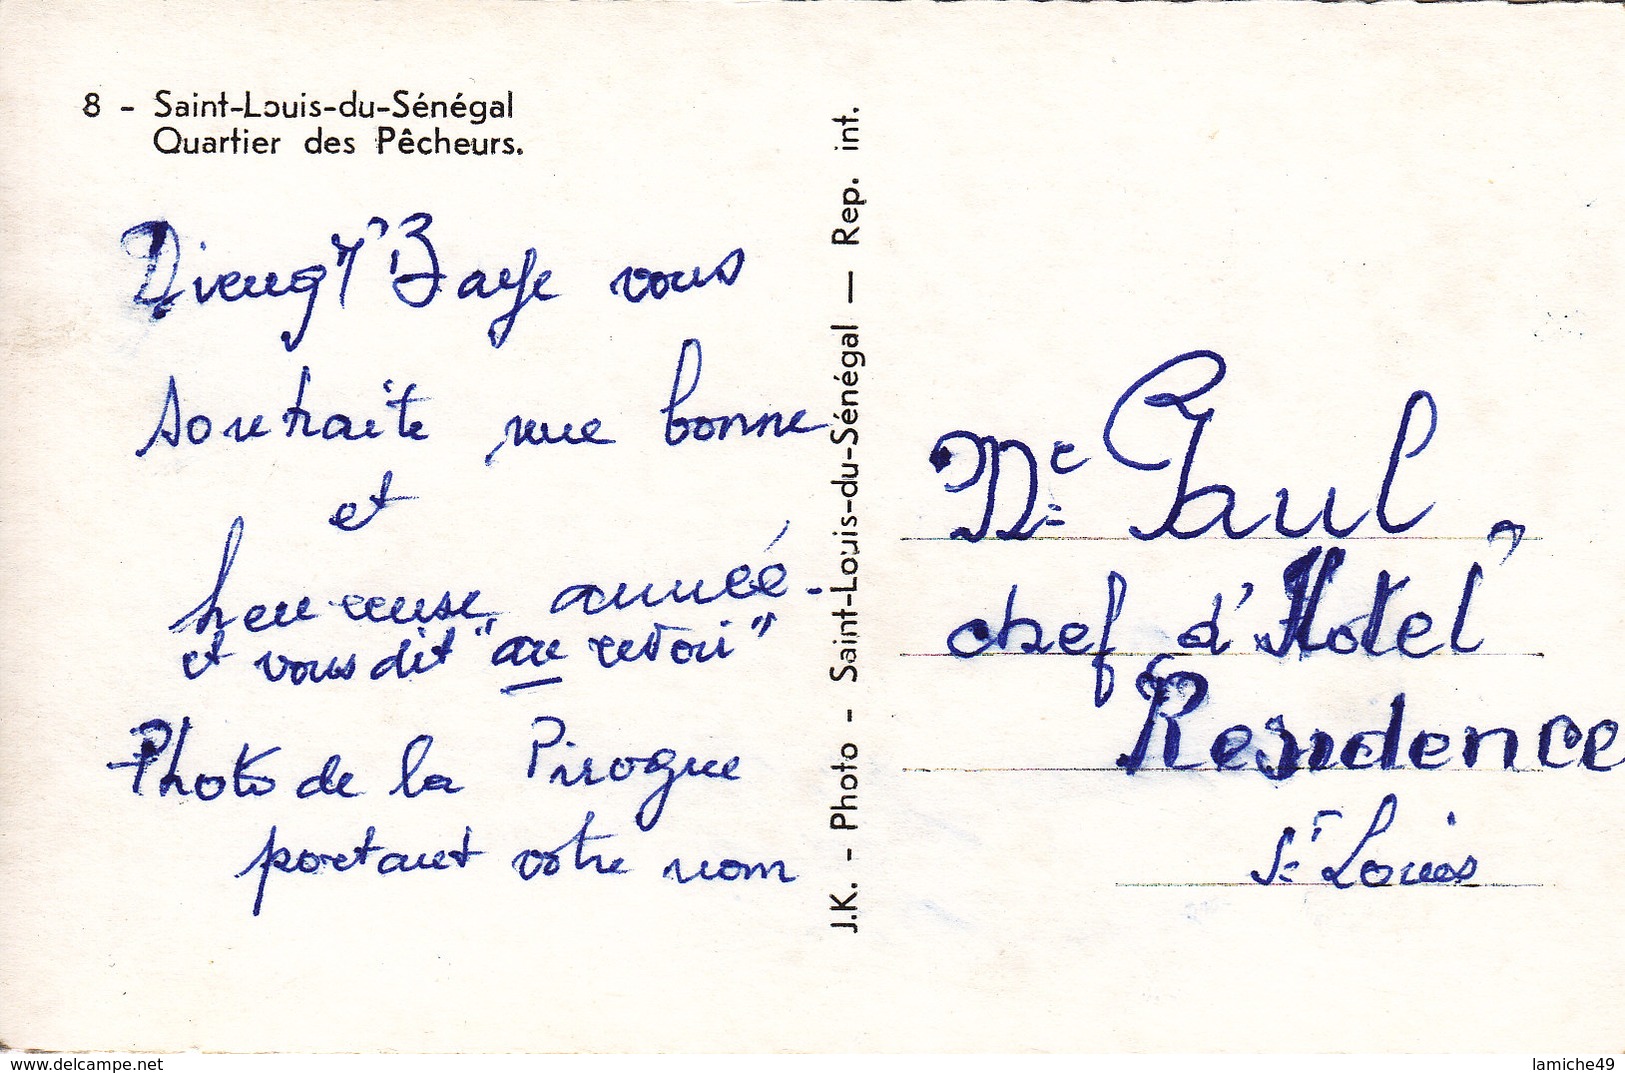 8 - Saint-Louis-du-Sénégal
Quartier des Pêcheurs.
vous
souhaite une bonne
et
heureuse année.
et vous dit "au revoir"
Photo de la Pirogue
portant votre nom
J.K. - Photo - Saint-Louis-du-Sénégal — Rep. int.
Paul
chef d'Hotel
Residence
St Louis
www.delcampe.net
lamiche49